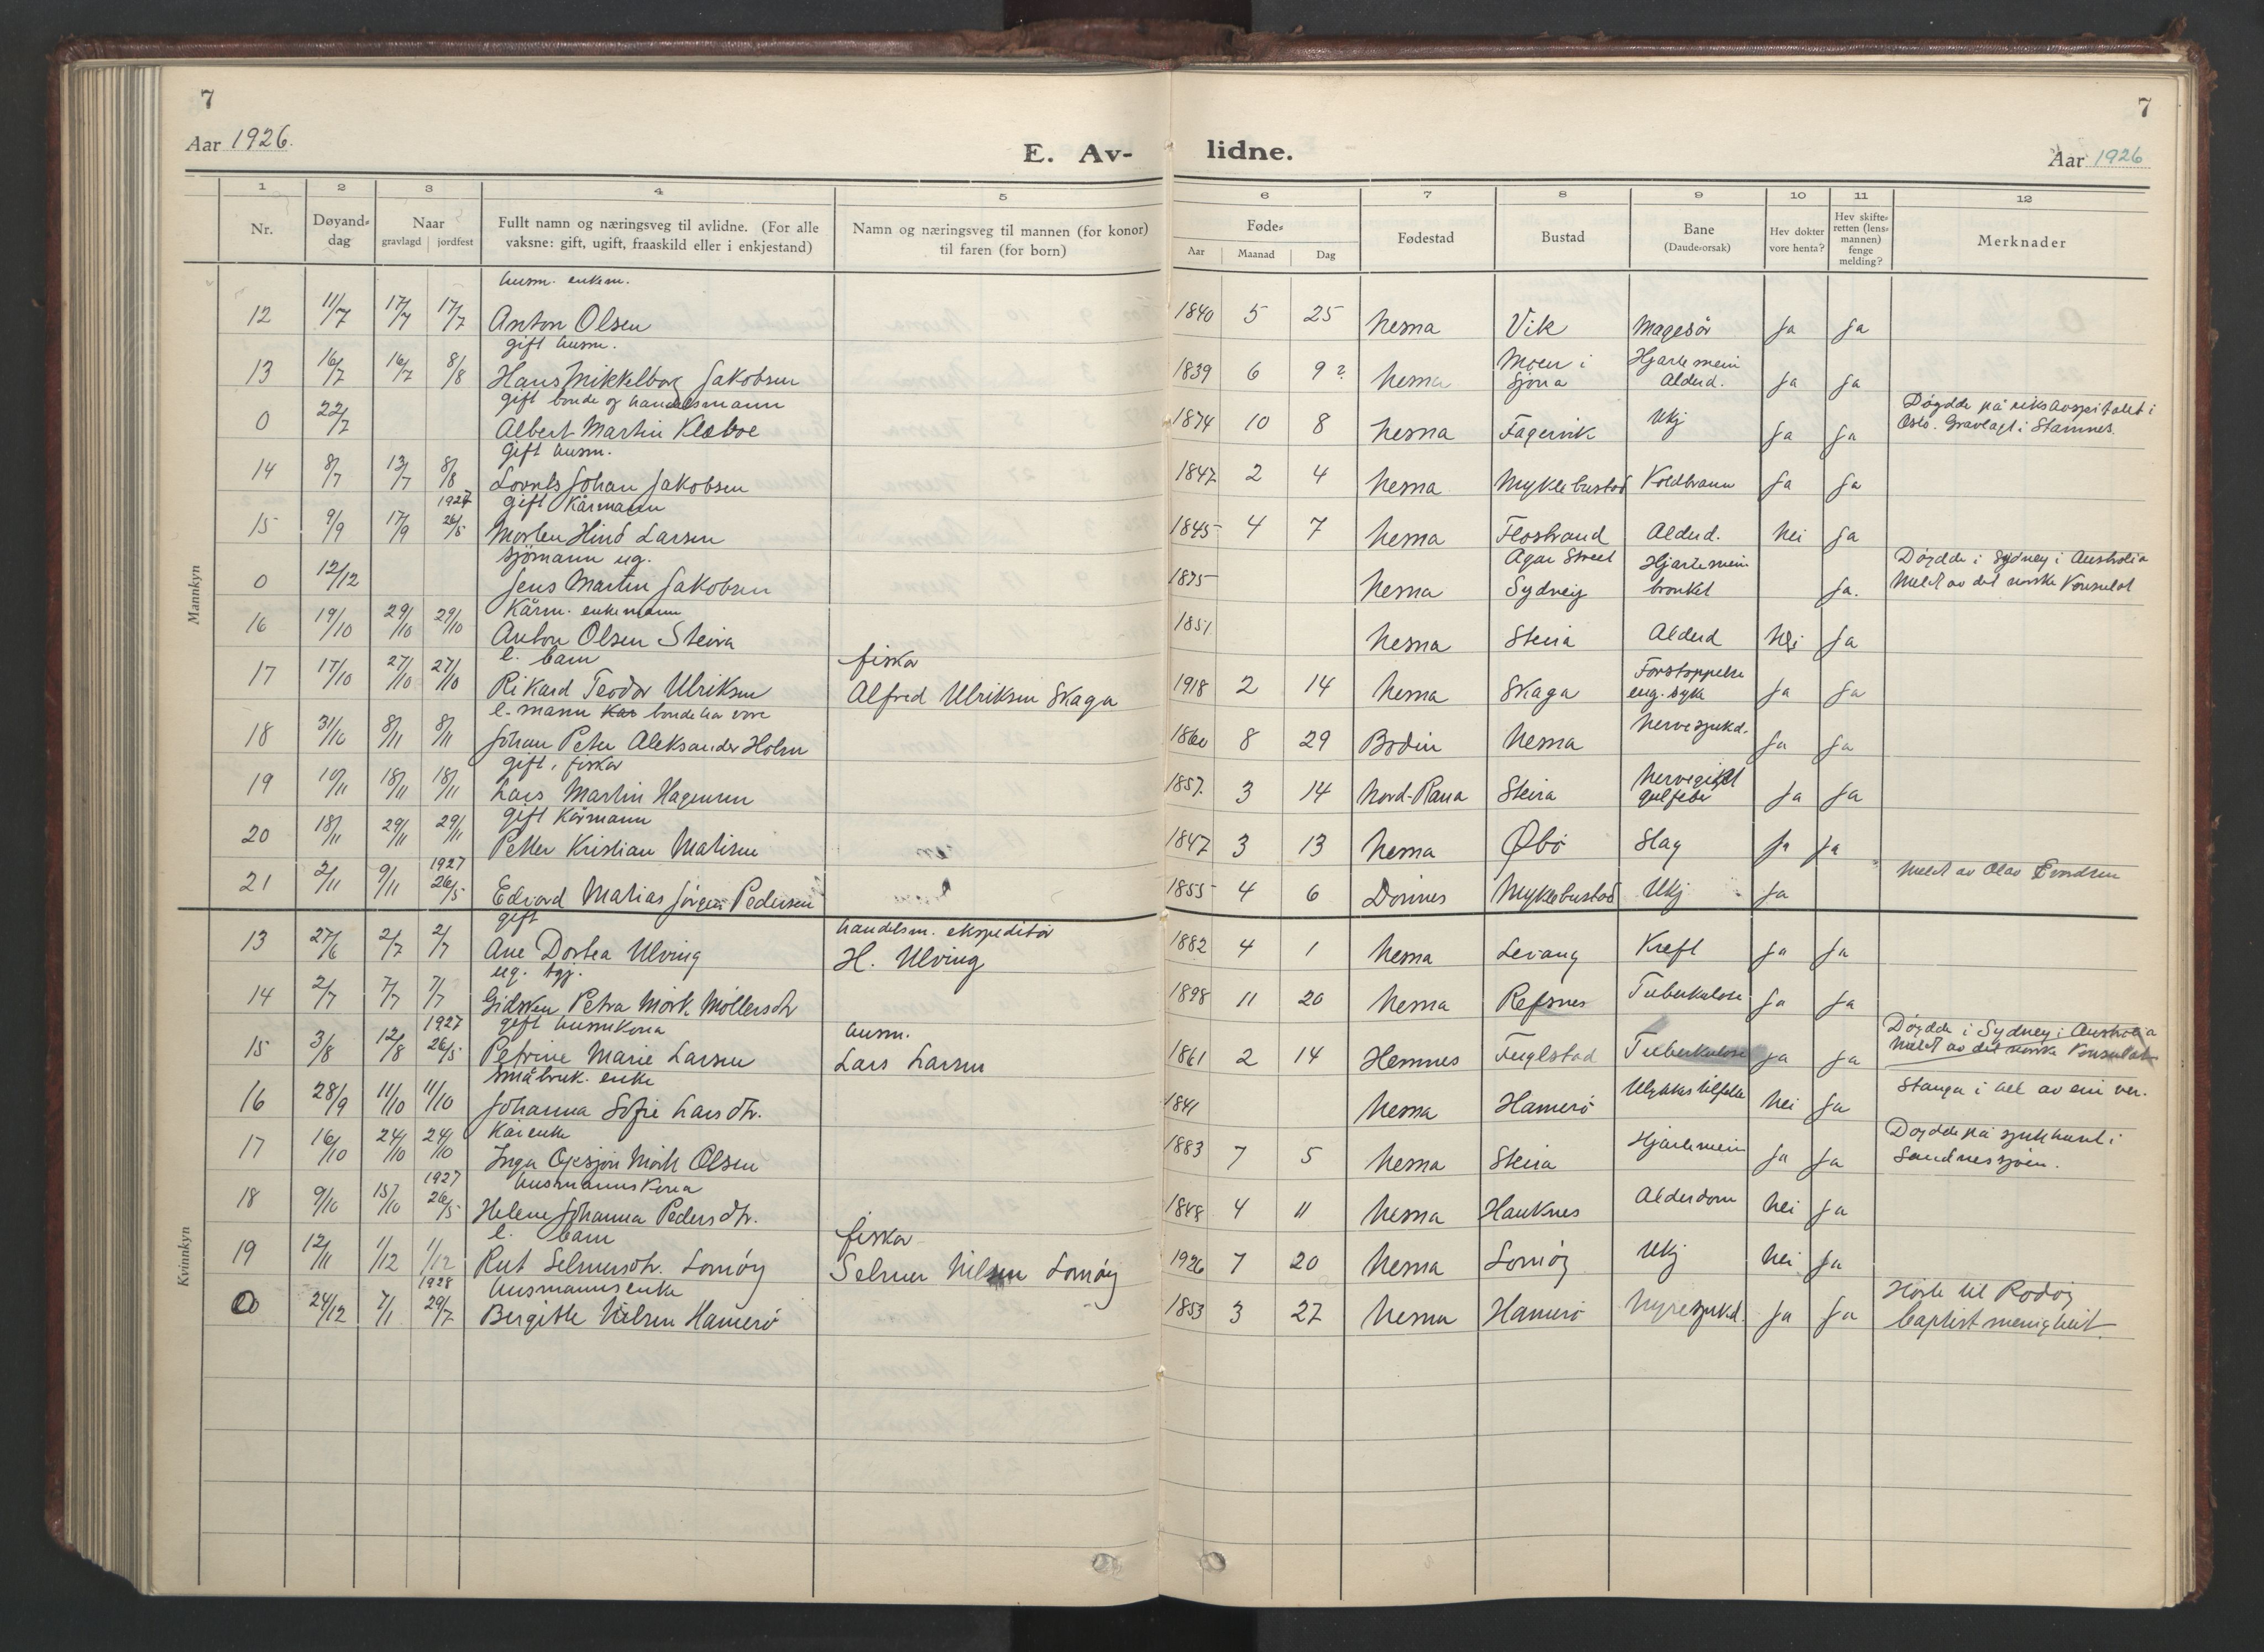 7
7
Aar 1926.
E. Av- lidne.
Aar 1926
1 2 3 4 5 6 7 8 9 10 11 12
Nr. Døyand-dag Naar gravlagd jordfest Fullt namn og næringsveg til avlidne. (For alle vaksne: gift, ugift, fraaskild eller i enkjestand) Namn og næringsveg til mannen (for konor) til faren (for born) Føde- Aar Maanad Dag Fødestad Bustad Bane (Daude-orsak) Hev dokter vore henta? Hev skifte-retten (lens-mannen) fenge melding? Merknader
Mannkyn
husm. enkem.
12 11/7 17/7 17/7 Anton Olsen 1840 5 25 Nesna Vik Magesår Ja Ja
gift husm.
13 16/7 16/7 8/8 Hans Mikkelborg Jakobsen 1839 6 9? Nesna Moen i Sjona Hjartemein Alderd. Ja Ja
gift bonde og handelsmann
0 22/7 Albert Martin Klæboe 1874 10 8 Nesna Fagervik Ukj Ja Ja Döydde på rikshospitalet i Oslo. Gravlagt i Stamnes.
gift husm.
14 8/7 13/7 8/8 Johan Jakobsen 1847 2 4 Nesna Myklebustad Koldbrann Ja Ja
1927 gift Kårmann
15 9/9 17/9 26/5 Morten Hind Larsen 1845 4 7 Nesna Flostrand Alderd. Nei Ja
sjömann ug.
0 12/12 Jens Martin Jakobsen 1875 Nesna Agar Street Sydney Hjartemein bronkt Ja. Döydde i Sydney i Australia Meldt av det norske Konsulat
Kårm. enkemann
16 19/10 29/10 29/10 Anton Olsen Steira 1851 Nesna Steira Alderd Nei Ja
e. barn fiskar
17 17/10 27/10 27/10 Rikard Teodor Ulriksen Alfred Ulriksen Skaga 1918 2 14 Nesna Skaga Forstoppelse eng. syke Ja Ja
e. mann bonde har vore
18 31/10 8/11 8/11 Johan Peter Aleksander Holm 1860 8 29 Bodin Nesna Nervesjukd. Ja Ja
gift, fiskar
19 10/11 18/11 18/11 Lars Martin Hagensen 1857 3 14 Nord-Rana Steira Ja Ja
gift Kårmann
20 18/11 29/11 29/11 Petter Kristian Matisen 1847 3 13 Nesna Øbö Slag Ja Ja
1927
21 2/11 9/11 26/5 Edvard Matias Jörgen Pedersen 1855 4 6 Dönnes Myklebustad Ukj Ja Meldt av Olav
Kvinnkyn
gift handelsm. ekspeditör
13 27/6 2/7 2/7 Ane Dortea Ulving H. Ulving 1882 4 1 Nesna Levang Kreft Ja Ja
ug. tgj.
14 2/7 7/7 7/7 Gidsken Petra Mörk Möllersdtr 1898 11 20 Nesna Refsnes Tuberkulose Ja Ja
1927 gift husmkona husm.
15 3/8 12/8 26/5 Petrine Marie Larsen Lars Larsen 1861 2 14 Hemnes Fuglstad Tuberkulose Ja Ja Döydde i Sydney i Australia Meldt av det norske Konsulat
småbruk. enke
16 28/9 11/10 11/10 Johanna Sofie Larsdtr. 1841 Nesna Hamerö Ulykkestilfelle Nei Ja Stanga i hel av ein ver.
Kårenke
17 16/10 24/10 24/10 Inga Mörk Olsen 1883 7 5 Nesna Steira Hjartemein Ja Ja Döydde på sjukehuset i Sandnessjöen.
1927 husmannskona
18 9/10 15/10 26/5 Helene Johanna Pedersdtr. 1848 4 11 Nesna Hauknes Alderdom Nei Ja
e. barn fiskar
19 12/11 1/12 1/12 Rut Selmersdtr. Lomöy Selmer Nilsen Lomöy 1926 7 20 Nesna Lomöy Ukj Nei Ja
1928 husmannsenke
0 24/12 7/1 29/7 Bergitte Nilsen Hamerö 1853 3 27 Nesna Hamerö Nyresjukd. Ja Ja Hörte til Rödöy baptistmenigheit.